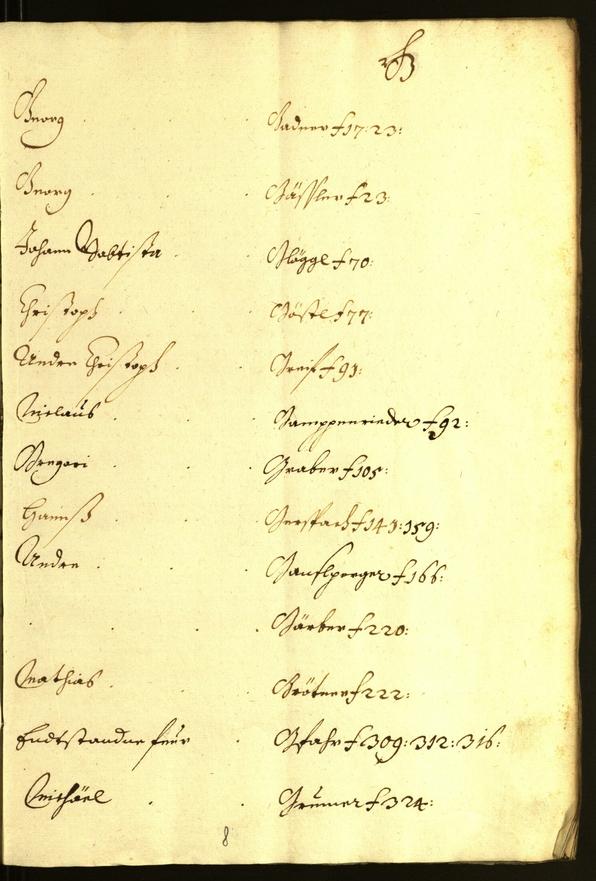 G
Georg Gadner f 17: 23:
Georg Gässler f 23:
Johann Babtista Glöggl f 70:
Christoph Göstl f 77:
Andre Christoph Greif f 91:
Niclaus Gamppenrieder f 92:
Gregori Graber f 105:
Hannß Gerspach f 141: 159:
Andre Ganslperger f 166:
Gärber f 220:
Mathias Grötner f 222:
Endtstandne feür Gfahr f 309: 312: 316:
Michäel Grumer f 324:
8